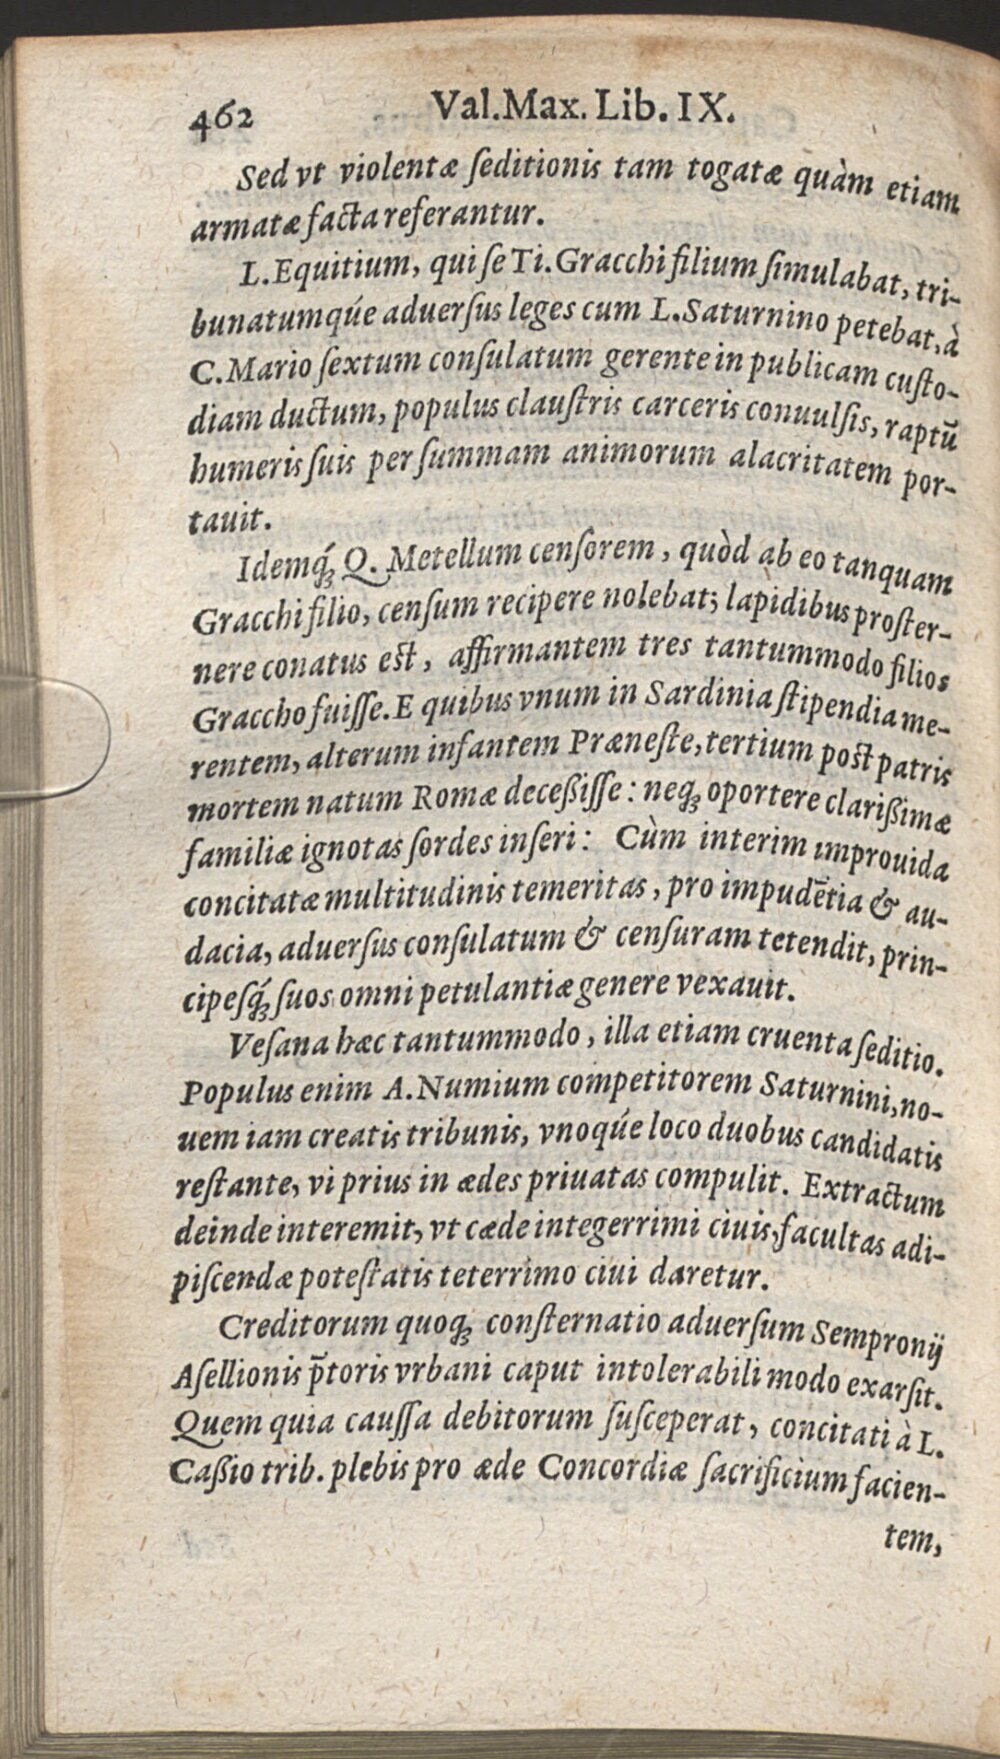 462 Val. Max. Lib. IX.
Sed vt violentæ ſeditionis tam togatæ quàm etiam
armatæ facta referantur.
L. Equitium, qui ſe Ti. Gracchi filium ſimulabat, tri-
bunatumqúe aduerſus leges cum L. Saturnino petebat, à
C. Mario ſextum conſulatum gerente in publicam cuſto-
diam ductum, populus clauſtris carceris conuulſis, raptū
humeris ſuis per ſummam animorum alacritatem por-
tauit.
Idemq́ꝫ Q. Metellum cenſorem, quòd ab eo tanquam
Gracchi filio, cenſum recipere nolebat; lapidibus proſter-
nere conatus eſt, affirmantem tres tantummodo filios
Graccho fuiſſe. E quibus vnum in Sardinia ſtipendia me-
rentem, alterum infantem Præneſte, tertium poſt patris
mortem natum Romæ deceßiſſe: neqꝫ oportere clarißimæ
familiæ ignotas ſordes inſeri: Cùm interim improuida
concitatæ multitudinis temeritas, pro impudētia & au-
dacia, aduerſus conſulatum & cenſuram tetendit, prin-
cipeſq́ꝫ ſuos omni petulantiæ genere vexauit.
Veſana hæc tantummodo, illa etiam cruenta ſeditio.
Populus enim A. Numium competitorem Saturnini, no-
uem iam creatis tribunis, vnoqúe loco duobus candidatis
reſtante, vi prius in ædes priuatas compulit. Extractum
deinde interemit, vt cæde integerrimi ciuis, facultas adi-
piſcendæ poteſtatis teterrimo ciui daretur.
Creditorum quoqꝫ conſternatio aduerſum Sempronij
Aſellionis p̄toris vrbani caput intolerabili modo exarſit.
Quem quia cauſſa debitorum ſuſceperat, concitati à L.
Caßio trib. plebis pro æde Concordiæ ſacrificium facien-
tem,